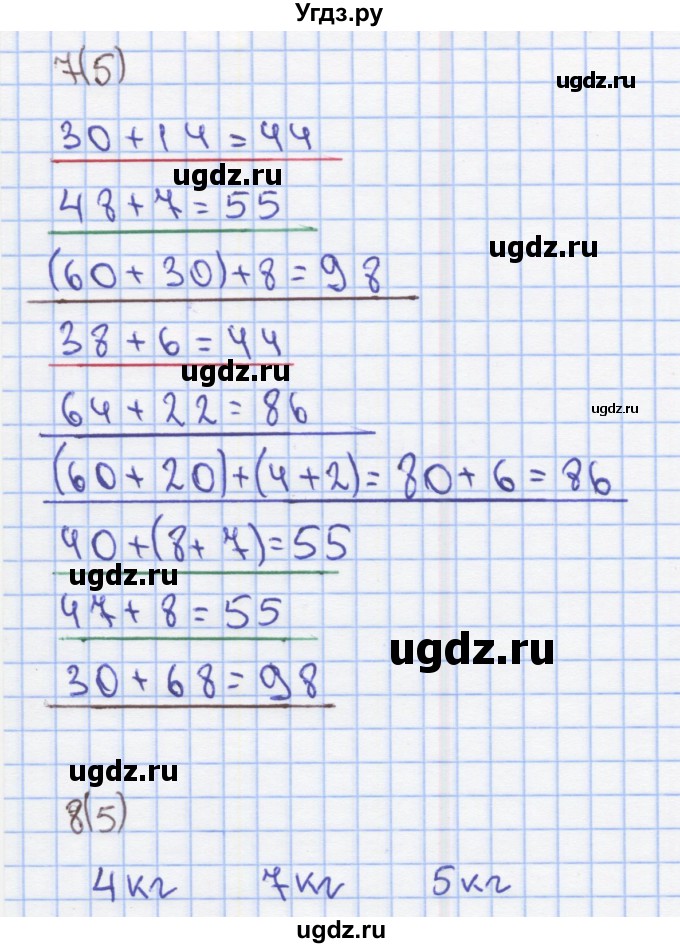 Угдз.ру
7(5)
ugdz.ru
30 + 14 = 44
ugdz.ru
48 + 7 = 55
ugdz.ru
(60 + 30) + 8 = 98
38 + 6 = 44
ugdz.ru
64 + 22 = 86
ugdz.ru
(60 + 20) + (4 + 2) = 80 + 6 = 86
40 + (8 + 7) = 55
ugdz.ru
47 + 8 = 55
ugdz.ru
30 + 68 = 98
ugdz.ru
8(5)
4 кг 7 кг 5 кг
ugdz.ru